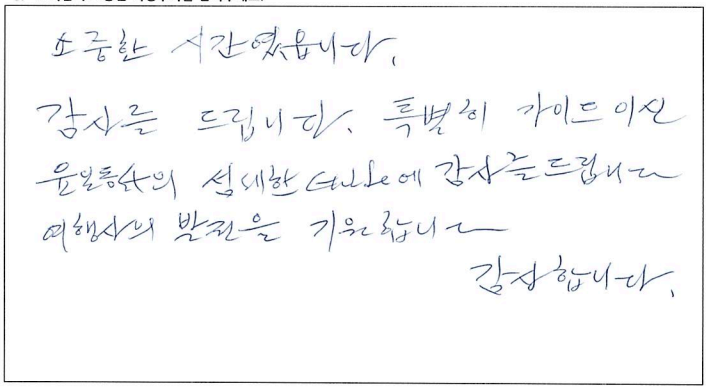 소중한 시간였읍니다.
감사를 드립니다. 특별히 가이드이신
의 섬세한 Guide에 감사를드립니다
여행사의 발전을 기원합니다
감사합니다.